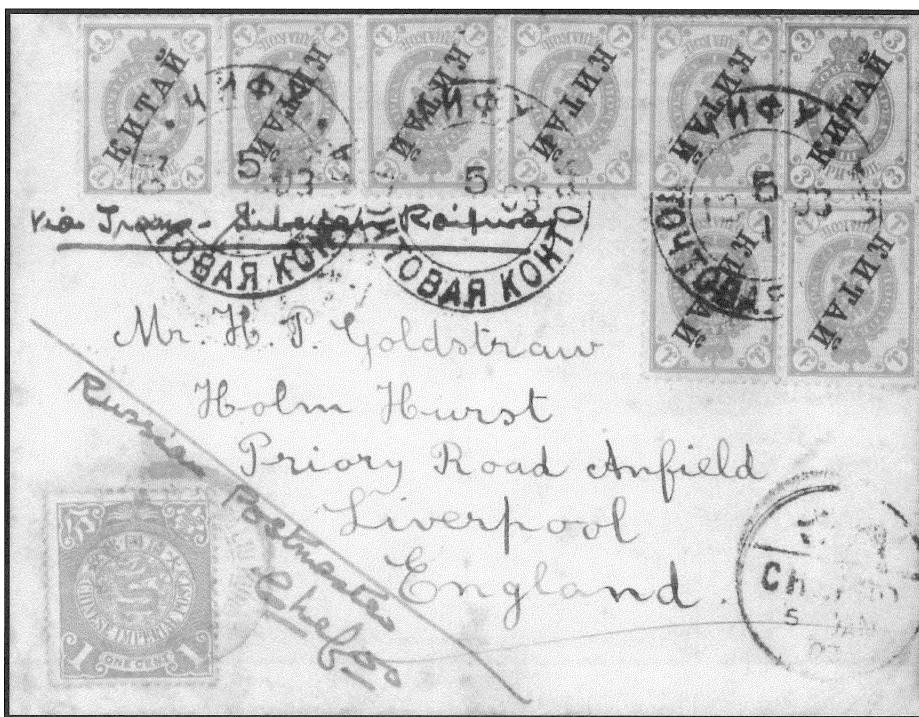 КИТАЙ КИТАЙ КИТАЙ КИТАЙ КИТАЙ КИТАЙ
1 1 3 3
ЧИФУ ЧИФУ ЧИФУ
5 03 5 03
КИТАЙ КИТАЙ
ТОВАЯ КОНТО ПОЧТОВАЯ
via Trans-Siberian Railway
Mr. H. P. Goldstraw
Holm Hurst
Priory Road Anfield
Liverpool
England.
Russian Postmaster
Chefoo
CHINESE IMPERIAL POST
1 ONE CENT 1
5 JAN
03